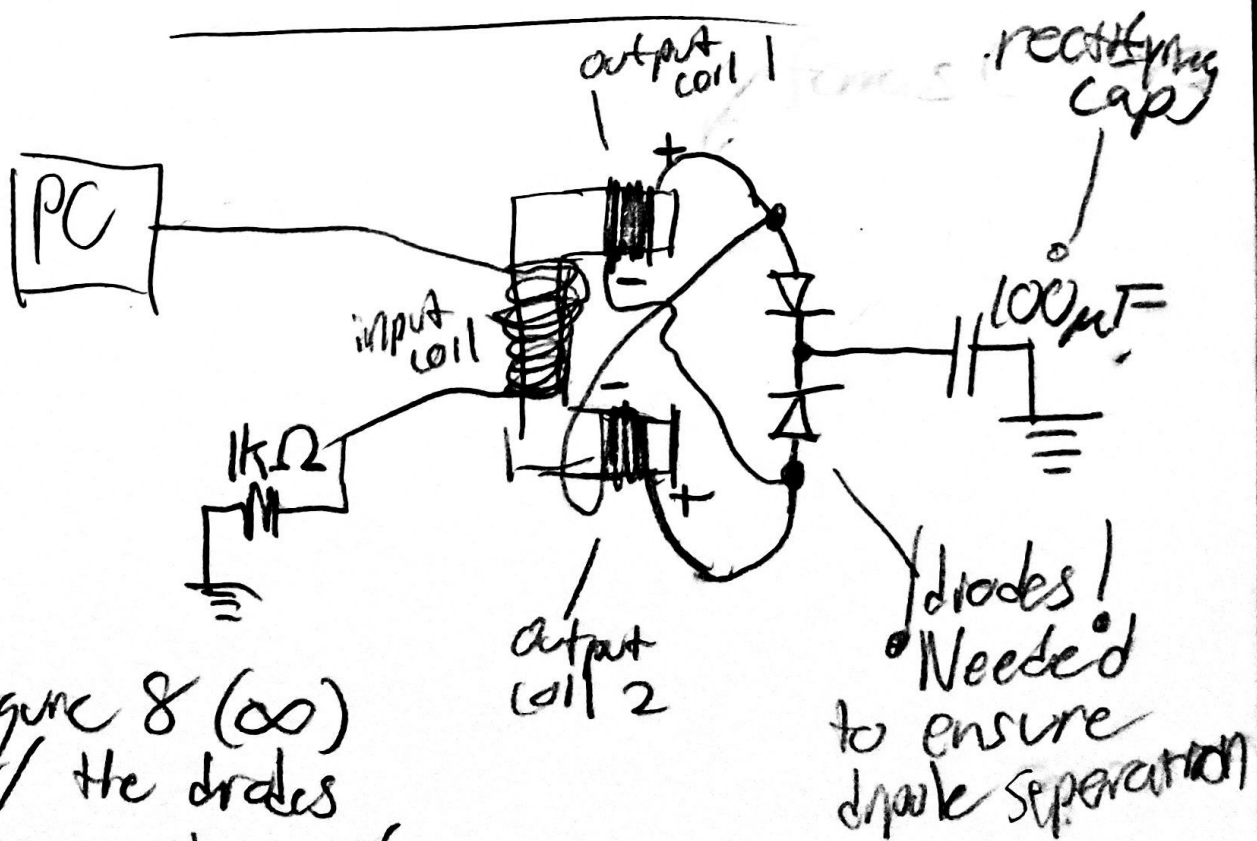 output
coil 1
rectifying
caps
PC
+
-
100μF
input
coil
-
1kΩ
+
output
coil 2
diodes!
Needed
to ensure
dipole seperation
gure 8 (∞)
/ the diodes